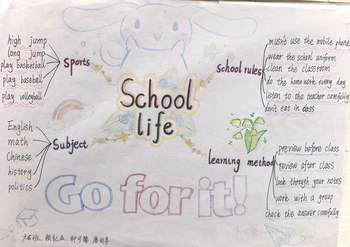 high jump
long jump
play basketball
play baseball
play volleyball
Sports
English
math
Chinese
history
politics
Subject
School
life
School rules
mustn't use the mobile phone
wear the school uniform
clean the classroom
do the homework every day
listen to the teacher carefully
don't eat in class
learning method
preview before class
review after class
look through your notes
work with a group
check the answer carefully
Go for it!